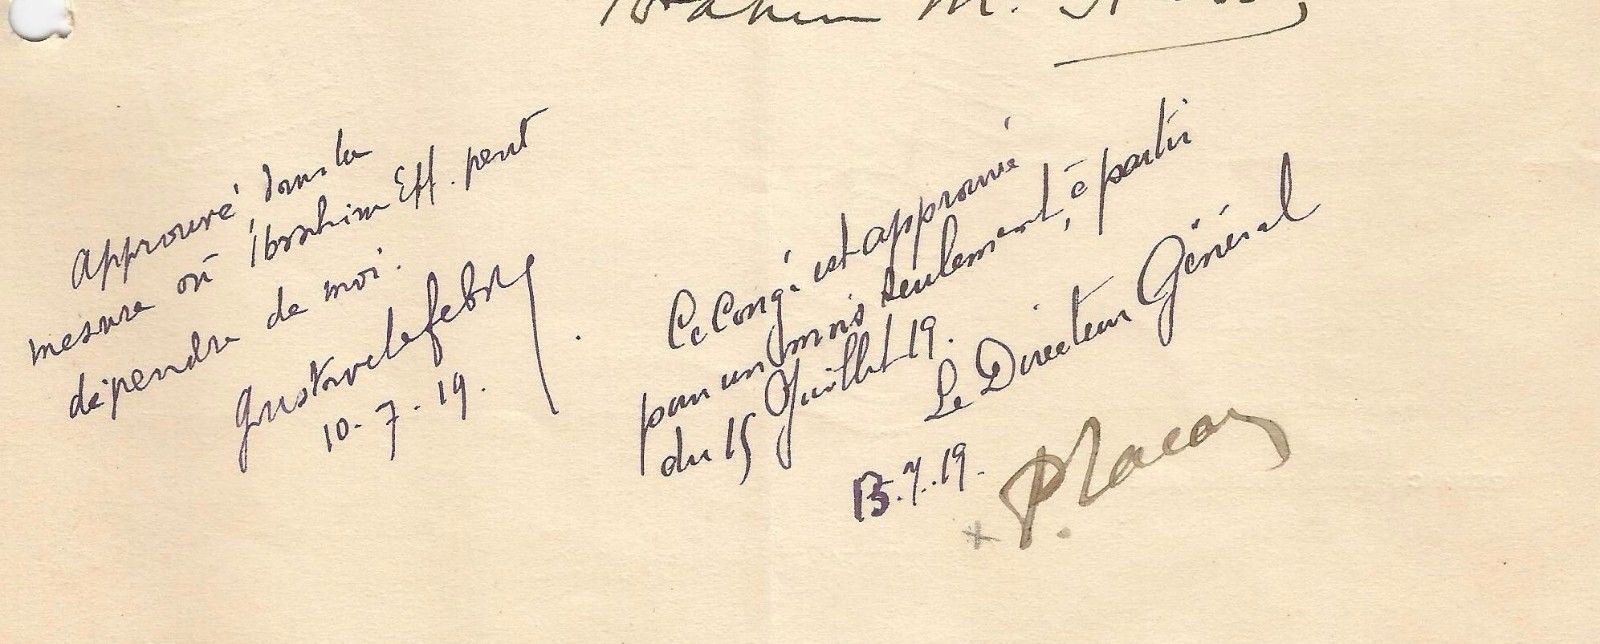 Ibrahim M.
Approuvé, dans la
mesure où Ibrahim Eff. peut
dépendre de moi.
Gustave Lefebvre
10.7.19.
Ce Congé est approuvé
pour un mois seulement, à partir
du 15 Juillet 19.
Le Directeur Général
.7.19.
P. Lacau